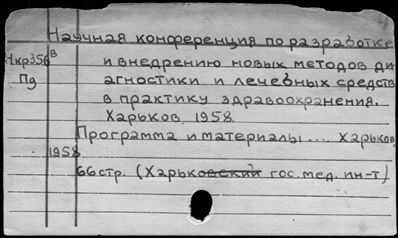 Научная конференция по разработке
Нкр356в и внедрению новых методов ди
Пд агностики и лечебных средств
в практику здравоохранения.
Харьков, 1958.
Программа и материалы ... Харьков,
1958
66 стр. (Харьковский гос. мед. ин-т)